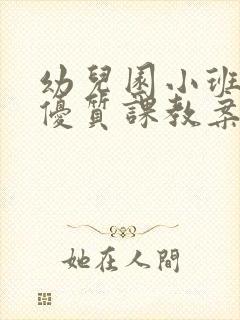 幼兒園小班
優質課教案
她在人間